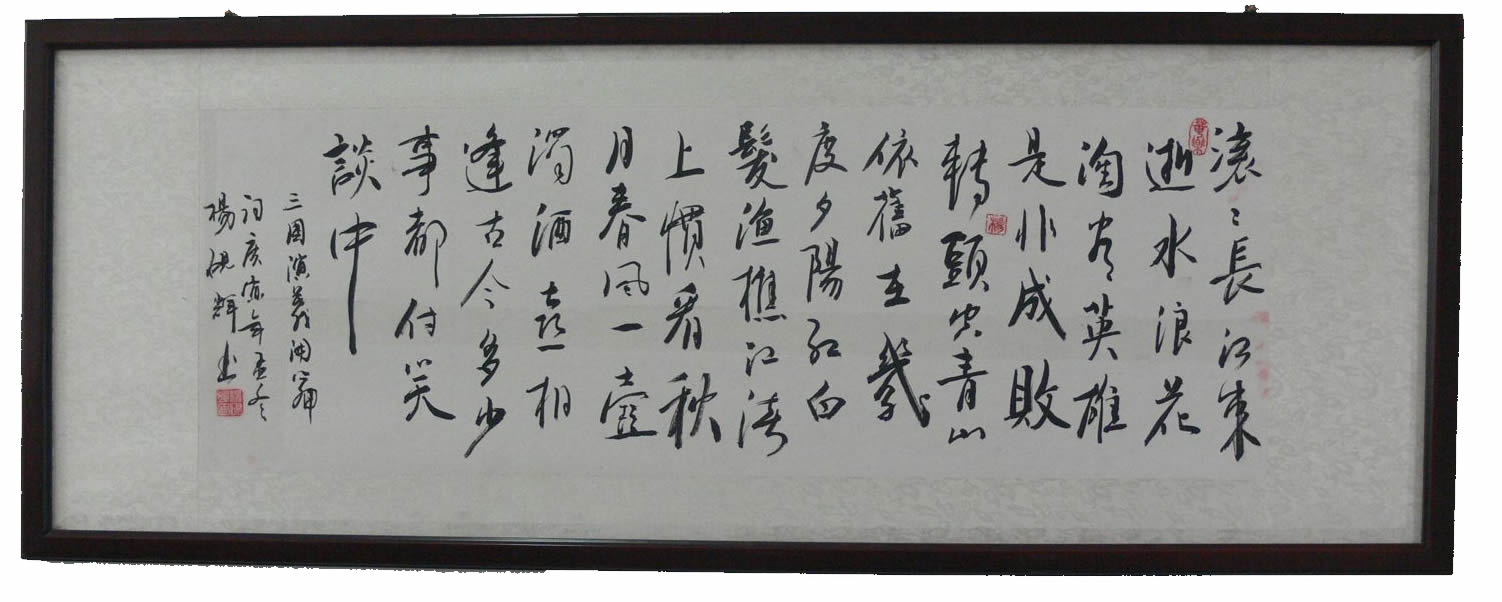 滚〻長江東
逝水浪花
淘尽英雄
是非成敗
轉頭空青山
依舊在幾
度夕陽紅白
髮漁樵江渚
上慣看秋
月春風一壺
濁酒喜相
逢古今多少
事都付笑
談中
三國演義開篇
词庚寅年孟冬
楊洪輝书
楊